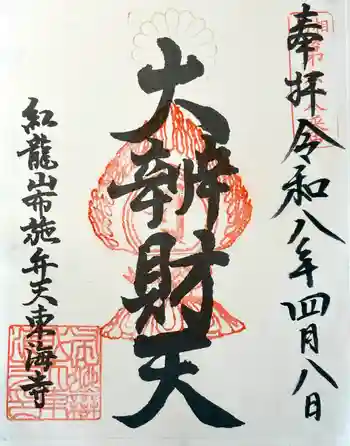 奉拝令和八年四月八日
大辨財天
紅龍山布施弁天東海寺